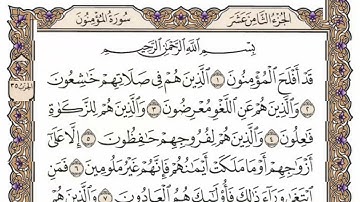 سُورَةُ المُؤْمِنُونَ الجُزْءُ الثَّامِنَ عَشَرَ
بِسْمِ اللَّهِ الرَّحْمَٰنِ الرَّحِيمِ
قَدْ أَفْلَحَ الْمُؤْمِنُونَ ١ الَّذِينَ هُمْ فِي صَلَاتِهِمْ خَٰشِعُونَ
٢ وَالَّذِينَ هُمْ عَنِ اللَّغْوِ مُعْرِضُونَ ٣ وَالَّذِينَ هُمْ لِلزَّكَوٰةِ
فَٰعِلُونَ ٤ وَالَّذِينَ هُمْ لِفُرُوجِهِمْ حَٰفِظُونَ ٥ إِلَّا عَلَىٰ
أَزْوَٰجِهِمْ أَوْ مَا مَلَكَتْ أَيْمَٰنُهُمْ فَإِنَّهُمْ غَيْرُ مَلُومِينَ ٦ فَمَنِ
ابْتَغَىٰ وَرَآءَ ذَٰلِكَ فَأُولَٰٓئِكَ هُمُ الْعَادُونَ ٧ وَالَّذِينَ هُمْ